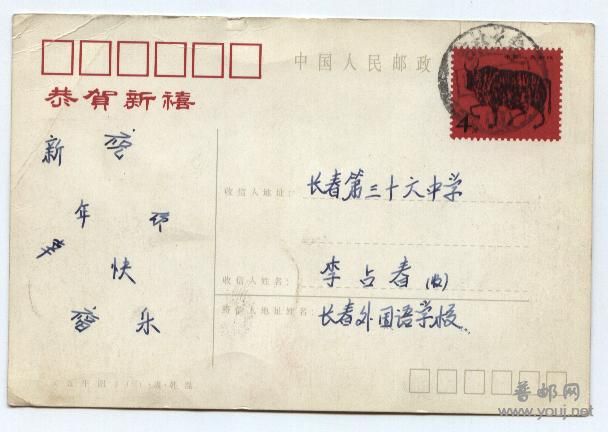 中国人民邮政
恭贺新禧
新
年
快
乐
收信人地址：
长春第三十六中学
收信人姓名：
李占春（收）
寄信人地址姓名：
长春外国语学校
普邮网
www.youj.net